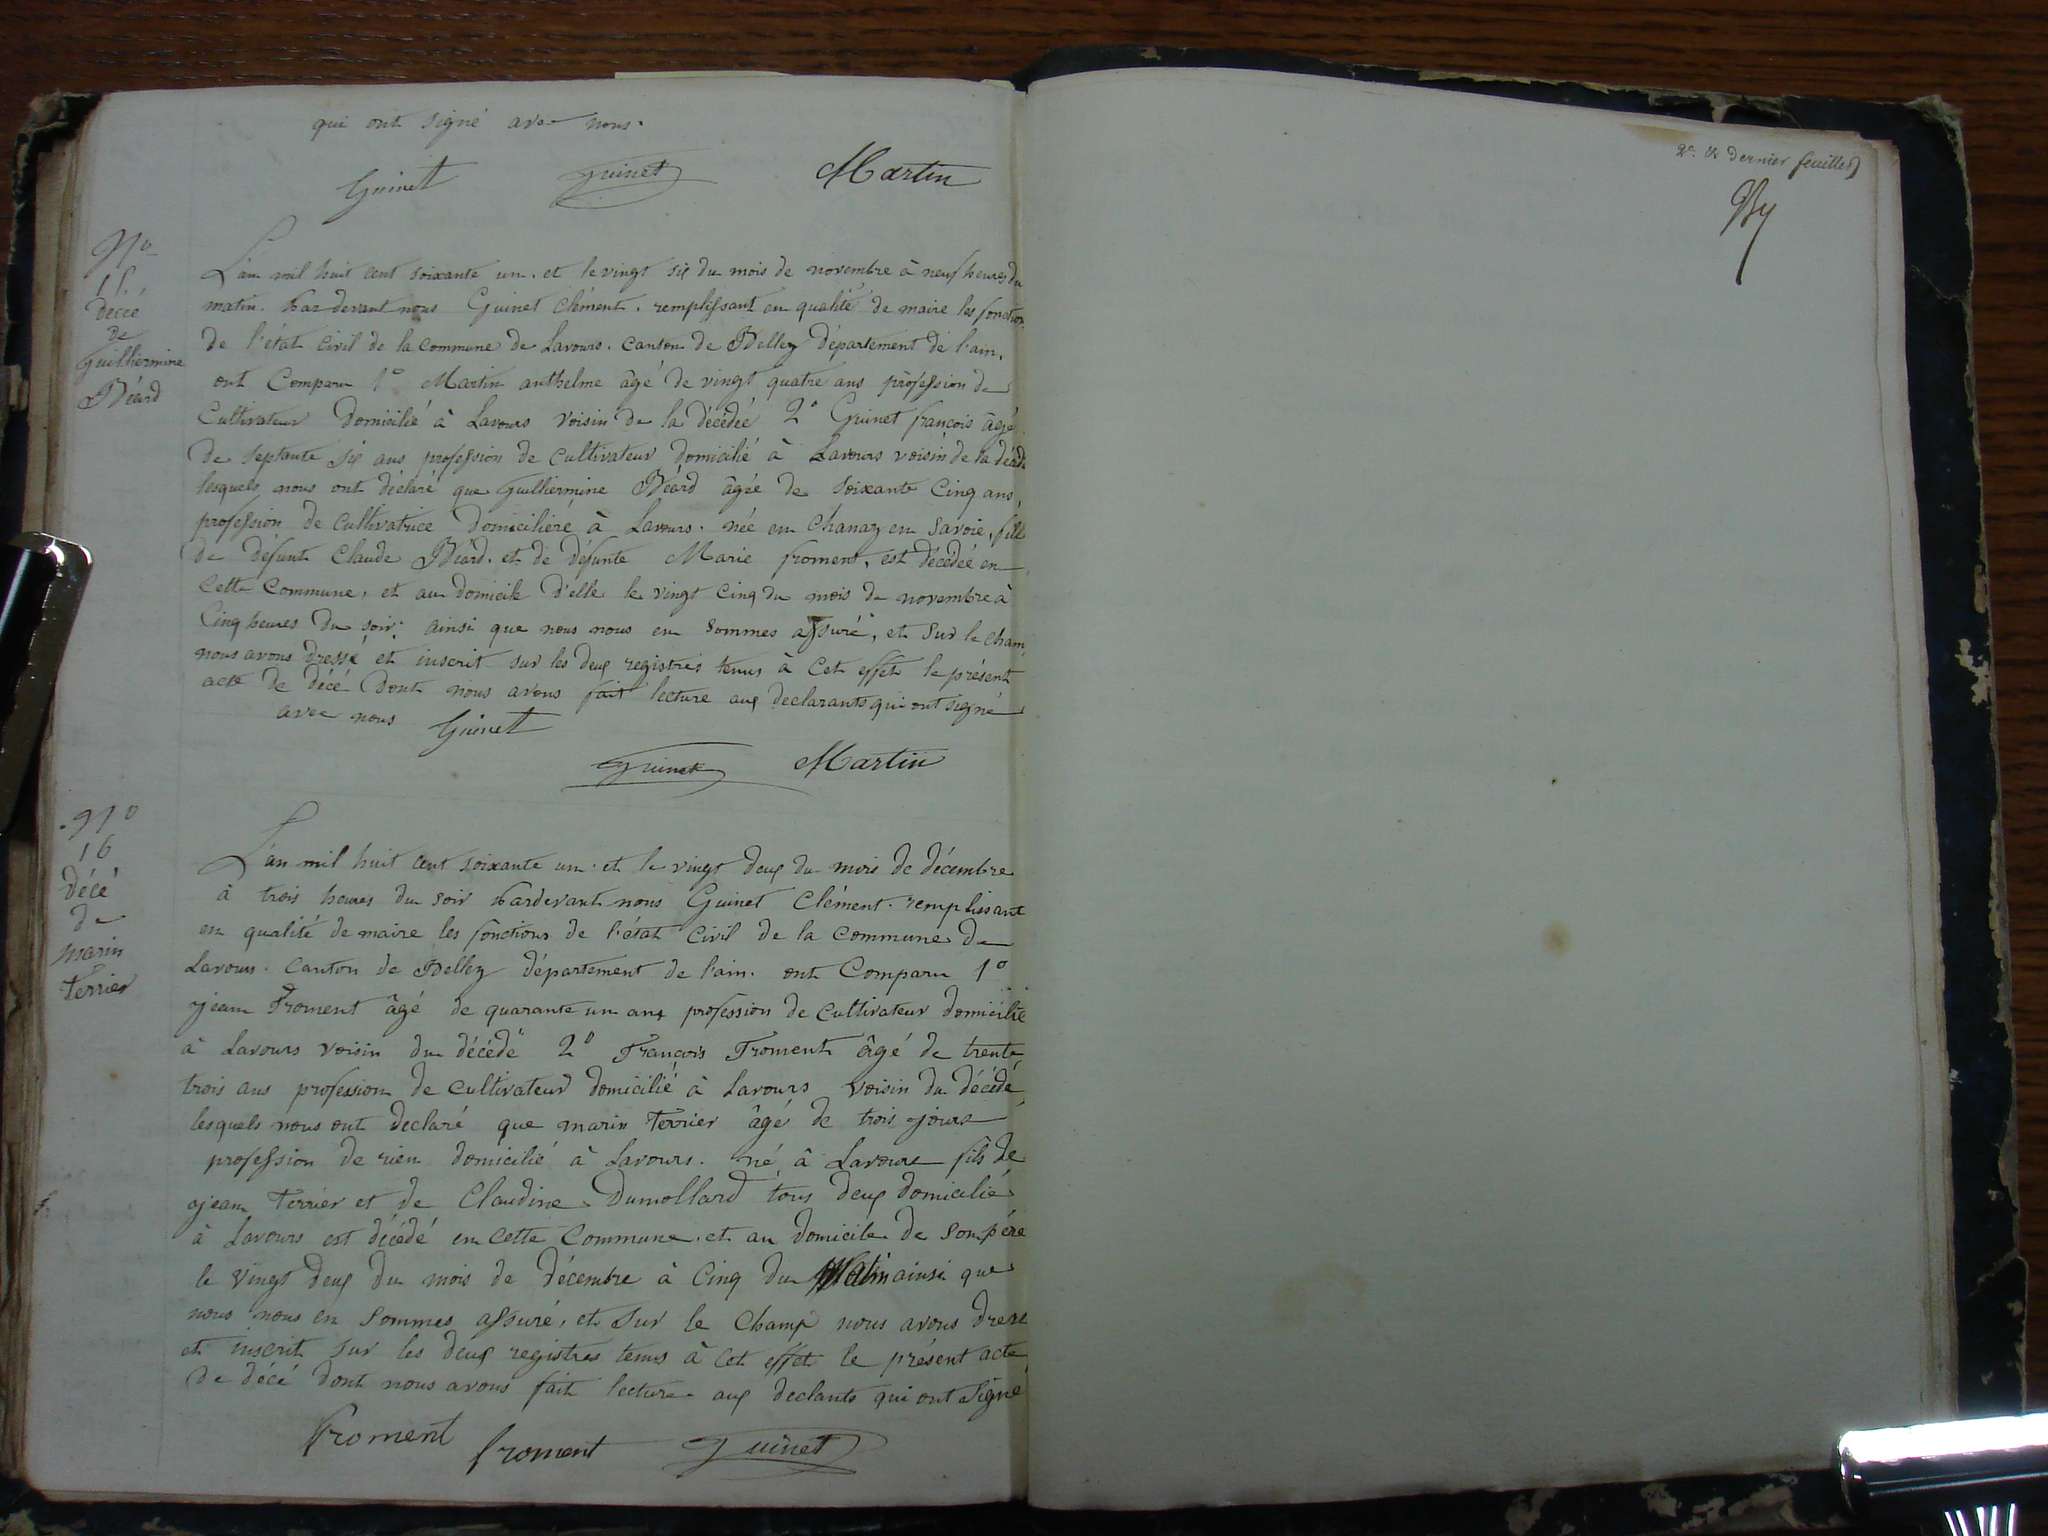 qui ont signé avec nous.
Guinet Guinet Martin
No
15.
décé
de
Guilliermine
Béard
L'an mil huit cent soixante un. et le vingt six du mois de novembre à neuf heures du
matin. Pardevant nous Guinet Clément. remplissant en qualité de maire les fonction
de l'état civil de la commune de Lavours. canton de Belley département de l'ain.
ont Comparu 1o Martin anthelme âgé de vingt quatre ans profession de
Cultivateur domicilié à Lavours voisin de la décédée 2o Guinet françois âgé
de septante six ans profession de cultivateur domicilié à Lavours voisin de la décédé
lesquels nous ont déclaré que Guilliermine Béard âgée de soixante Cinq ans,
profession de Cultivatrice domicilière à Lavours. née en Chanaz en Savoie, fille
de défunt Claude Béard. et de défunte Marie froment, est décédée en
Cette Commune, et au domicile d'elle le vingt Cinq du mois de novembre à
Cinq heures du soir. ainsi que nous nous en sommes assuré, et sur le cham
nous avons dressé et inscrit sur les deux registres tenus à Cet effet le présent
acte de décé dont nous avons fait lecture aux declarants qui ont signé
avec nous Guinet
Guinet Martin
No
16
décé
de
marin
terrier
L'an mil huit cent soixante un. et le vingt deux du mois de décembre
à trois heures du soir Pardevant nous Guinet Clément. remplissant
en qualité de maire les fonctions de l'état Civil de la Commune de
Lavours. Canton de Belley département de l'ain. ont Comparu 1o
jean Froment âgé de quarante un ans profession de Cultivateur domicilié
à Lavours voisin du décédé 2o François Froment âgé de trente
trois ans profession de cultivateur domicilié à Lavours voisin du décédé
lesquels nous ont declaré que marin terrier âgé de trois jours
profession de rien domicilié à Lavours. né à Lavours fils de
jean terrier et de Claudine Dumollard tous deux domicilié
à Lavours est décédé en Cette Commune. et au domicile de son père
le vingt deux du mois de décembre à Cinq du Matin ainsi que
nous nous en sommes assuré, et sur le Champ nous avons dressé
et inscrit sur les deux registres tenus à Cet effet le présent acte
de décé dont nous avons fait lecture aux declants qui ont signé
froment froment Guinet
2e & dernier feuillet